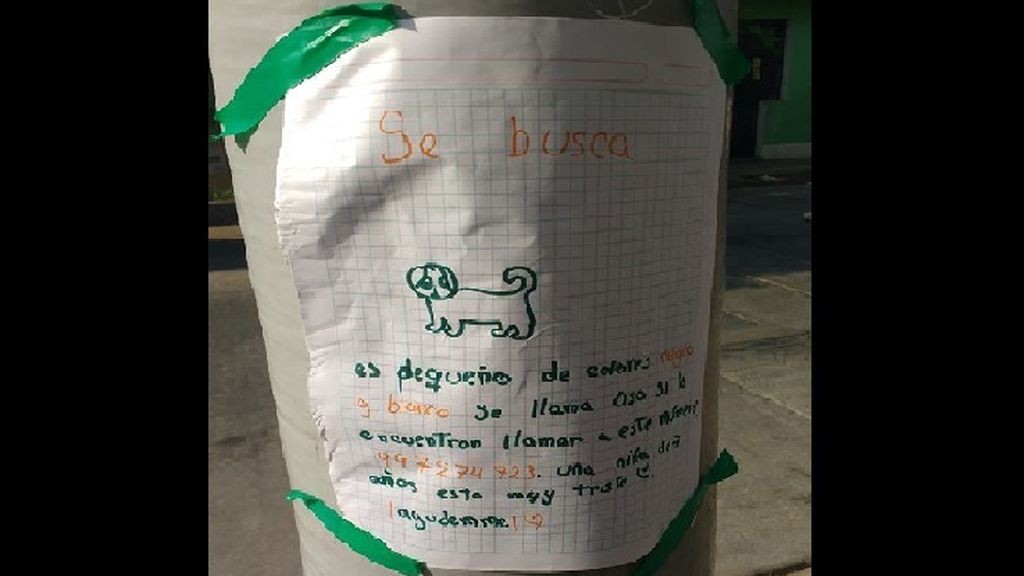 Se busca
es pequeño de colores negro
y banco se llama Oso si lo
encuentran llamar a este número
997274723. una niña de 7
años esta muy triste
¡ayudenme!